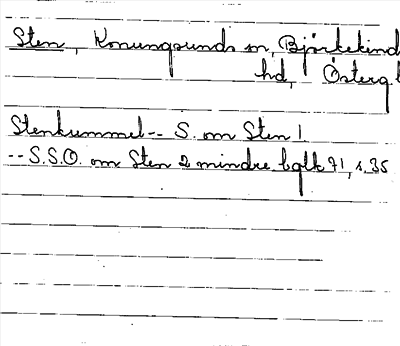 Sten, Konungsunds sn, Björkekind
hd, Österg.l
Stenkummel-- S. om Sten 1
--S.S.O. om Sten 2 mindre bglk 71, s. 35